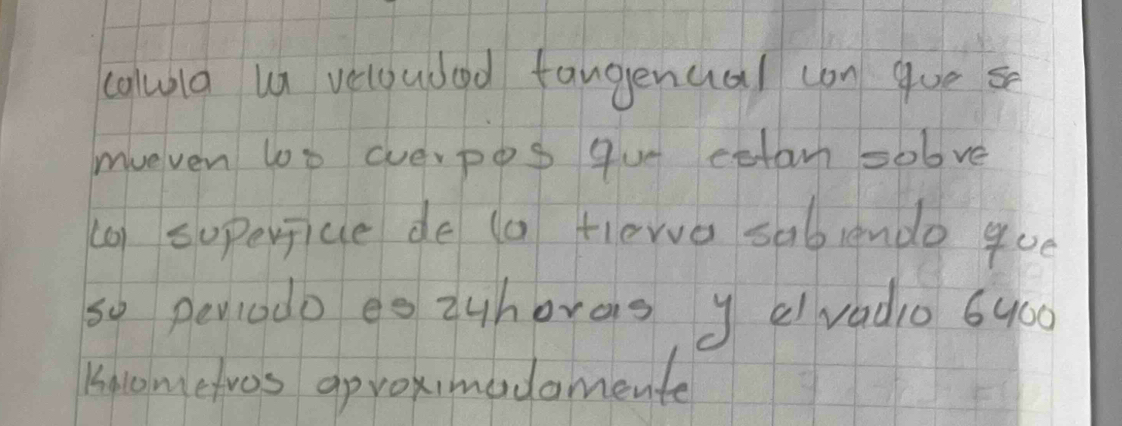 calcula la velocidad tangencial con que se
mueven los cuerpos que estan sobre
la superficie de la tierra sabiendo que
su periodo es 24 horas y el radio 6400
Kilometros aproximadamente